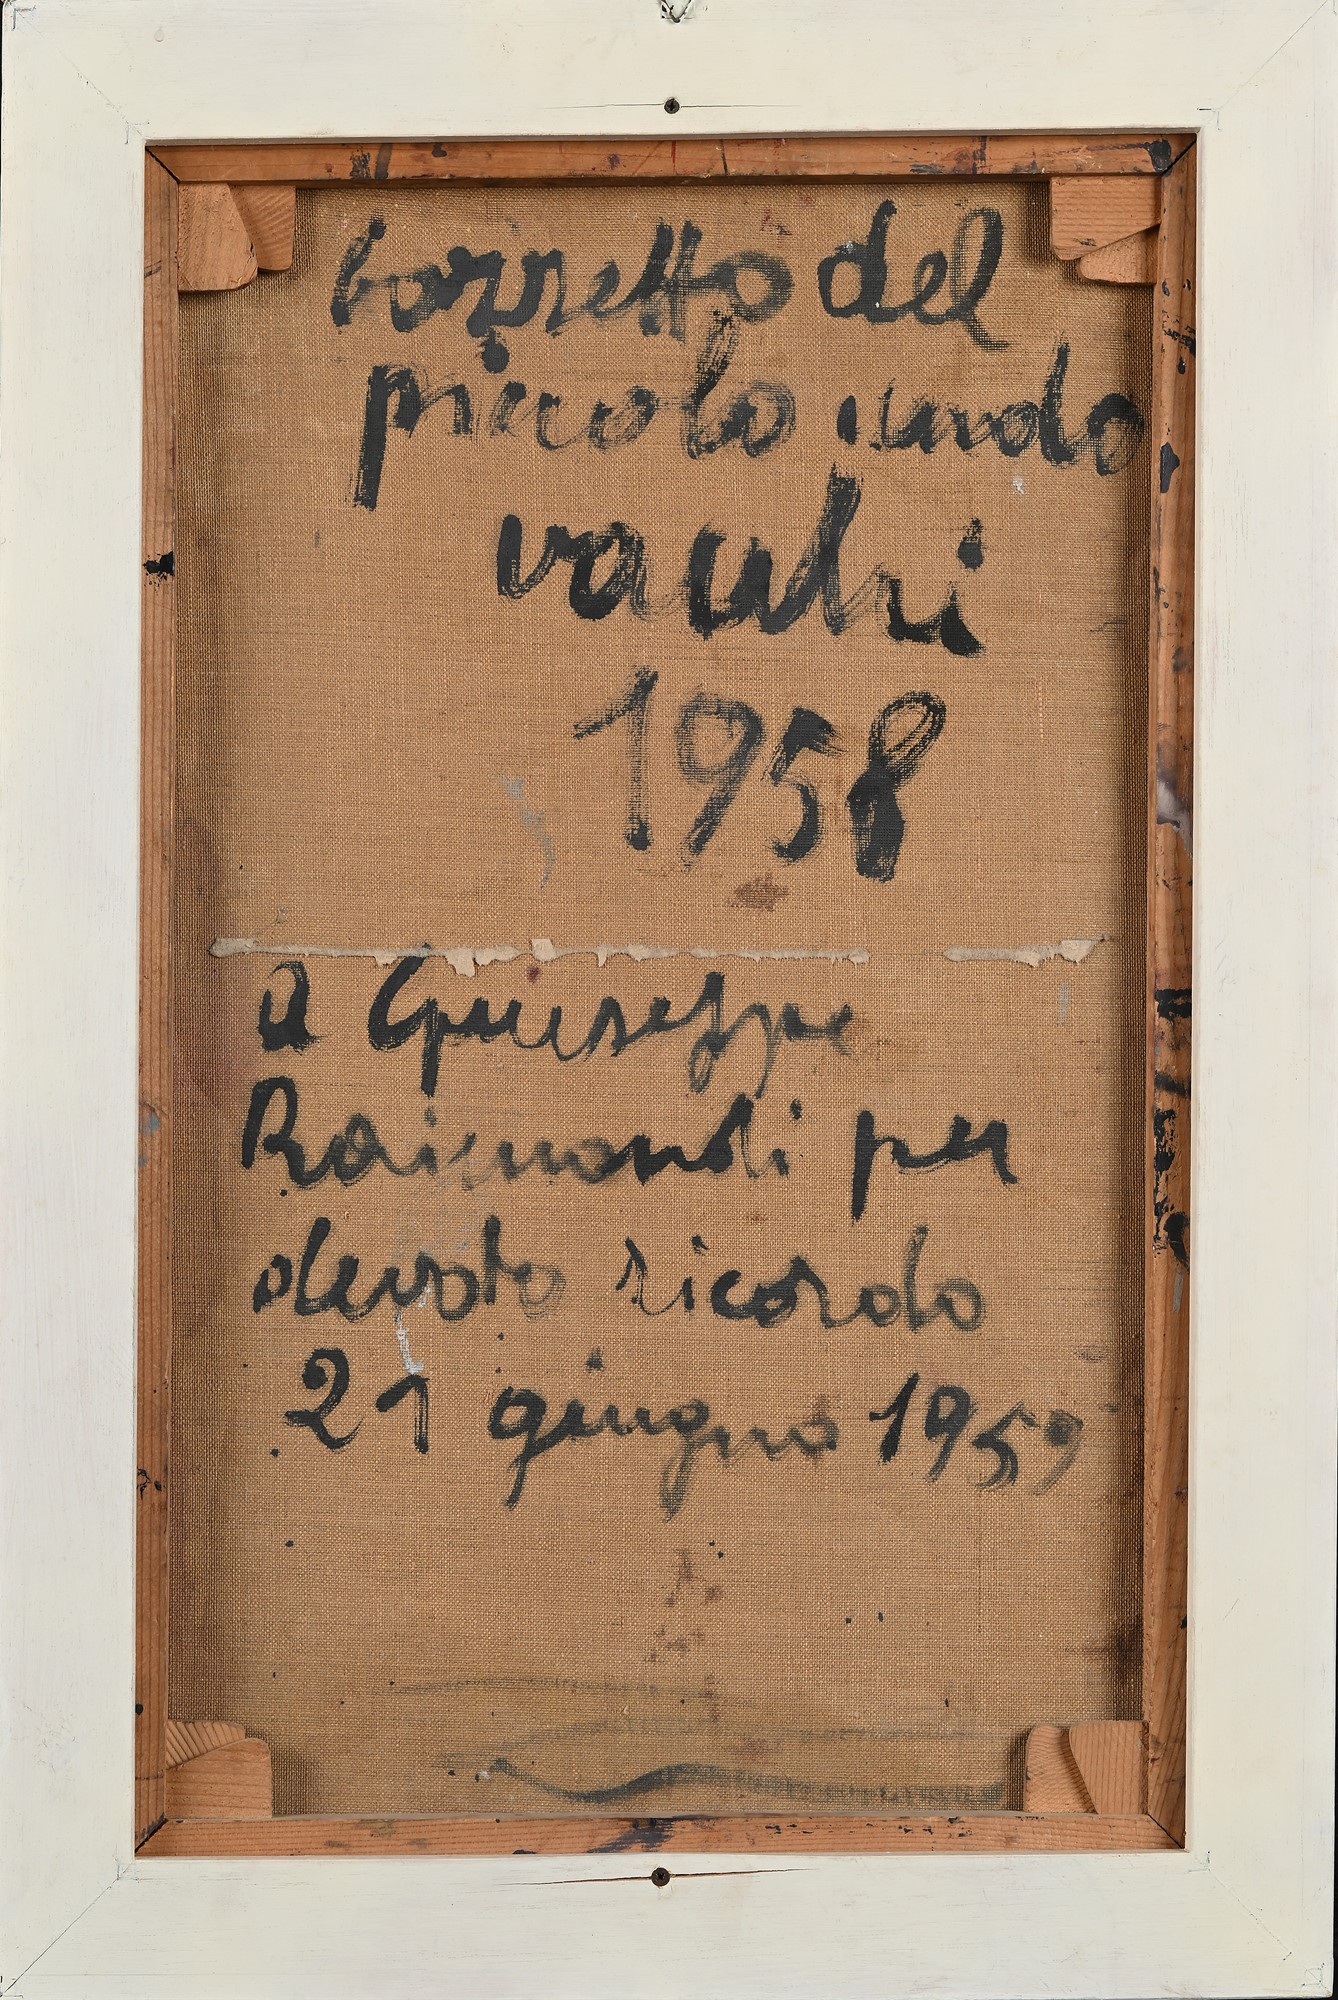 bozzetto del
piccolo mondo
vacchi
1958
a Giuseppe
Raimondi per
devoto ricordo
21 giugno 1959